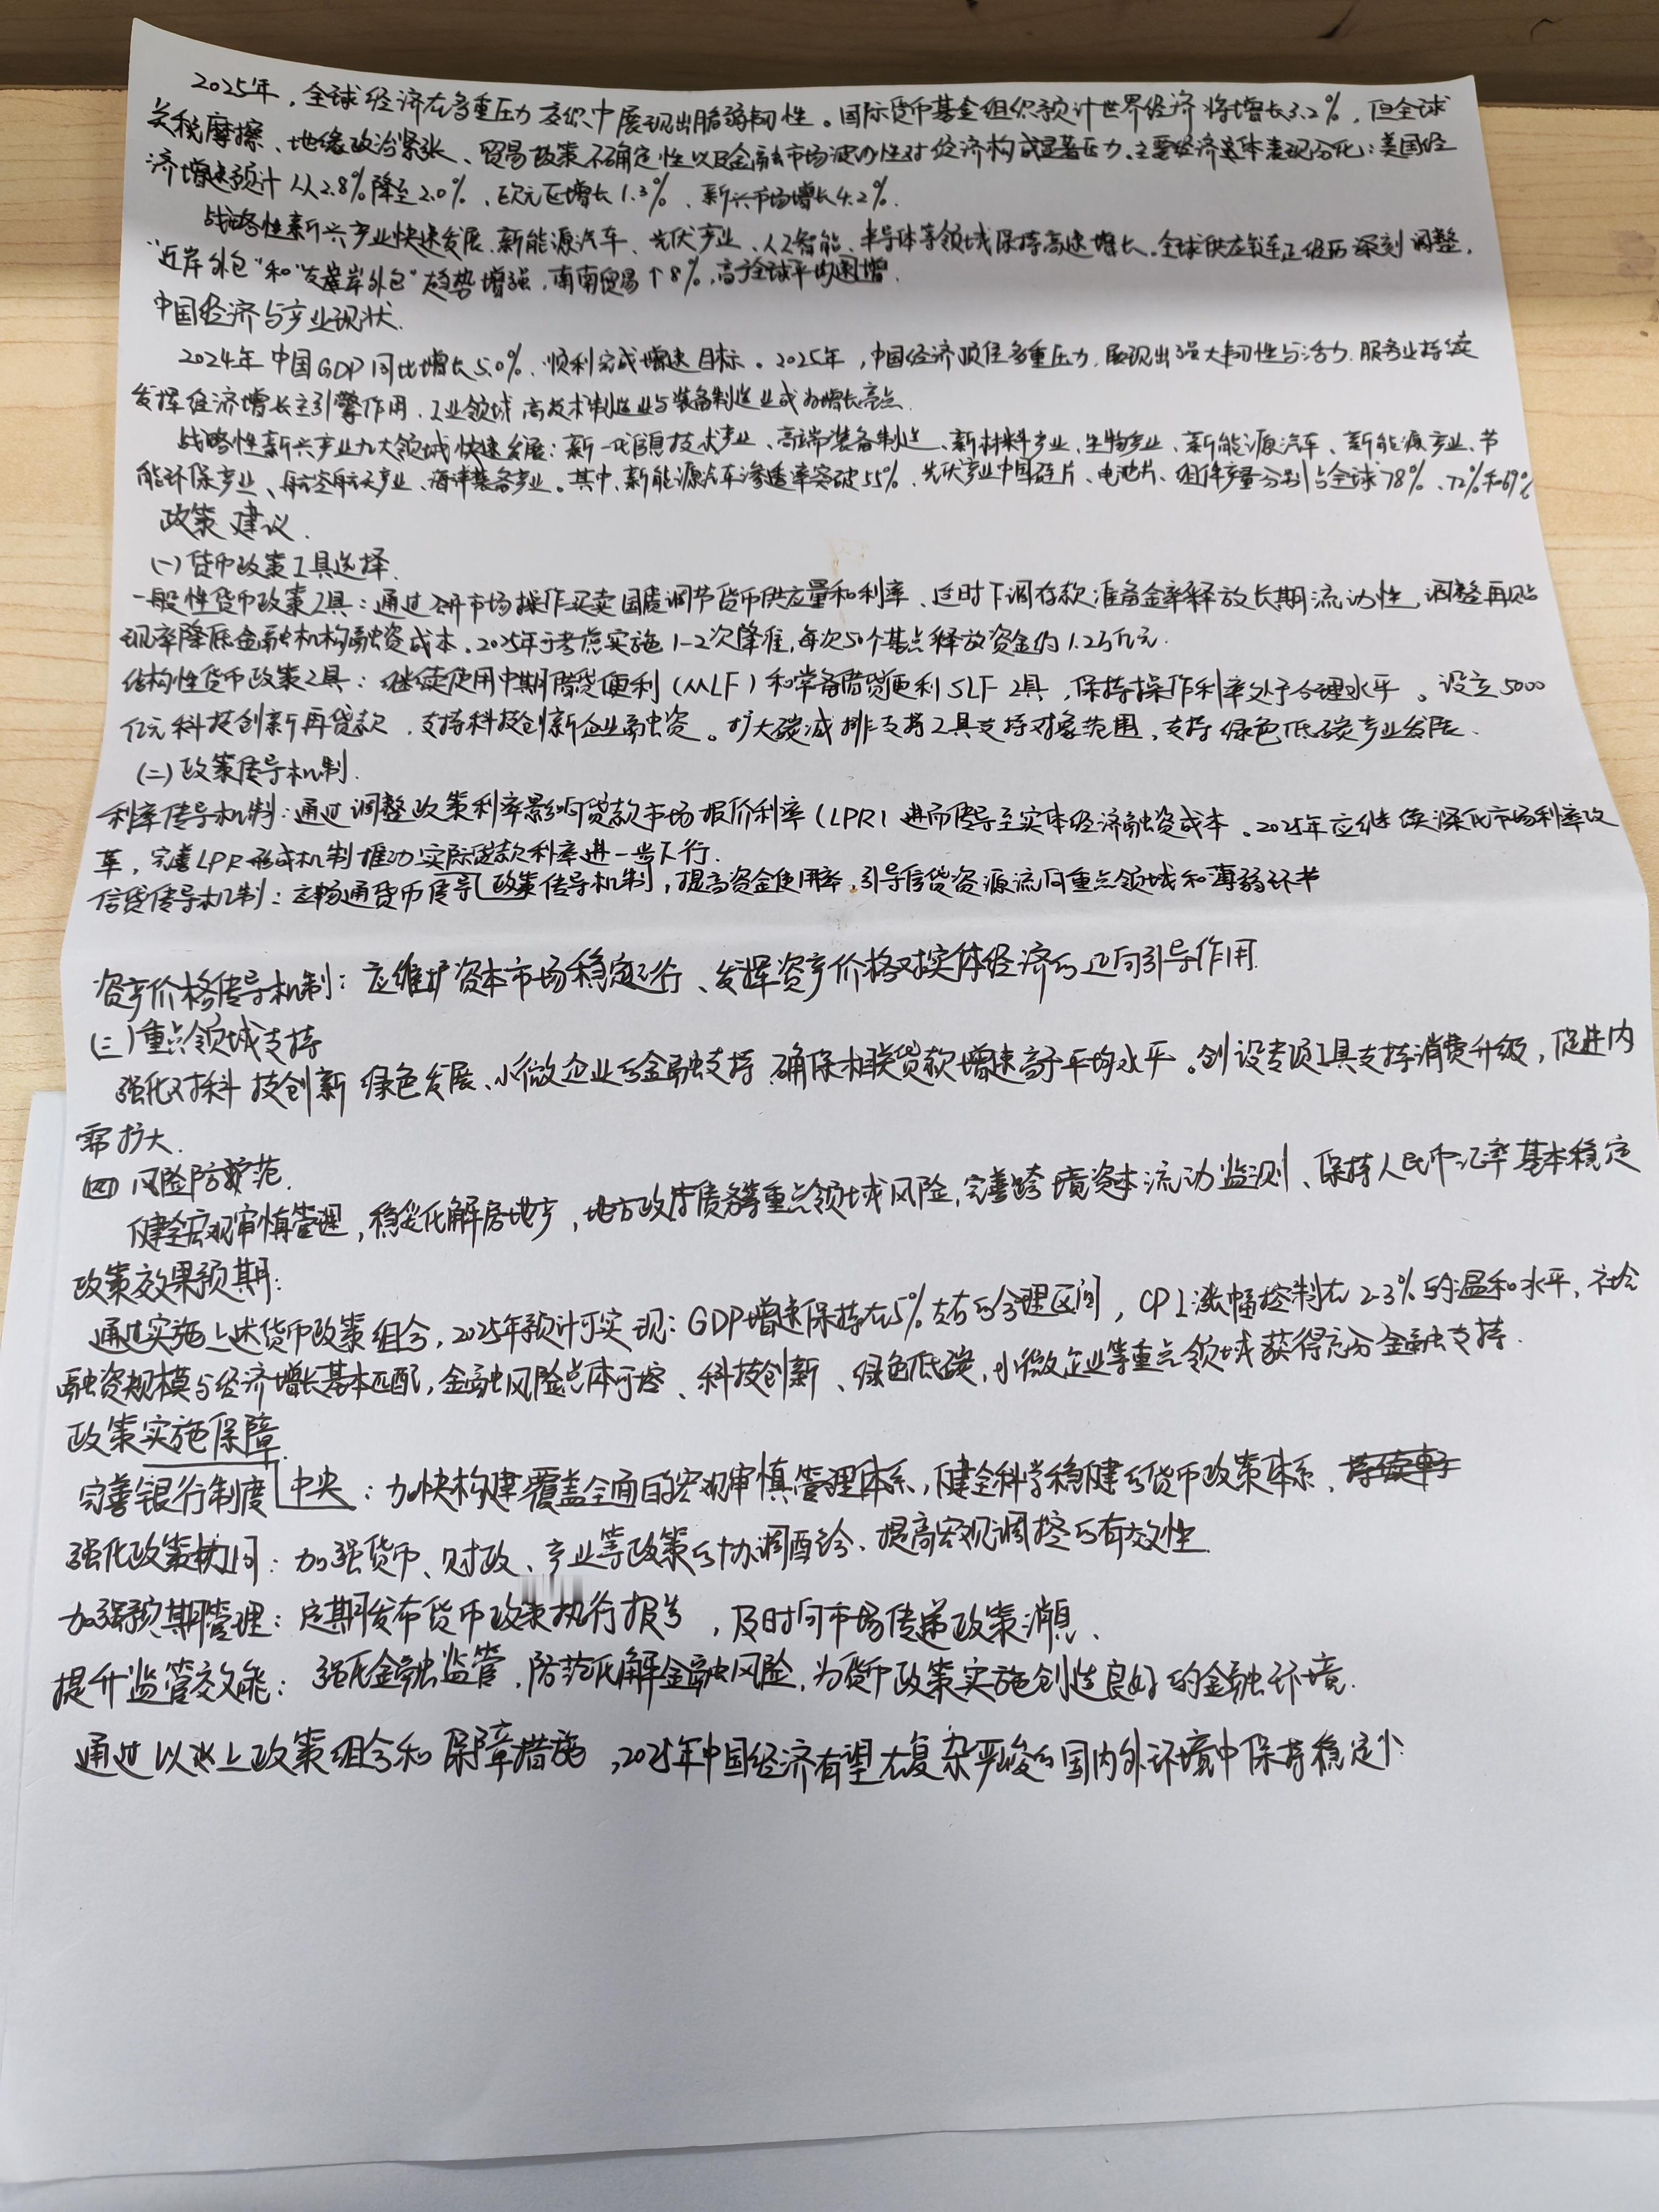 2025年，全球经济在多重压力交织中展现出脆弱韧性。国际货币基金组织预计世界经济将增长3.2%，但全球
关税摩擦、地缘政治紧张、贸易政策不确定性以及金融市场波动性对经济构成显著压力.主要经济体表现分化：美国经
济增速预计从2.8%降至2.0%、欧元区增长1.3%、新兴市场增长4.2%.
战略性新兴产业快速发展、新能源汽车、光伏产业、人工智能、半导体等领域保持高速增长.全球供应链正经历深刻调整，
"近岸外包"和"友岸外包"趋势增强，南南贸易↑8%，高于全球平均增.
中国经济与产业现状.
2024年中国GDP同比增长5.0%、顺利完成增速目标。2025年，中国经济顶住多重压力，展现出强大韧性与活力.服务业持续
发挥经济增长主引擎作用、工业领域高技术制造业与装备制造业成为增长亮点.
战略性新兴产业九大领域快速发展：新一代信息技术产业、高端装备制造、新材料产业、生物产业、新能源汽车、新能源产业、节
能环保产业、航空航天产业、海洋装备产业。其中、新能源汽车渗透率突破55%、光伏产业中国硅片、电池片、组件产量分别占全球78%、72%和69%
政策建议.
(一)货币政策工具选择.
一般性货币政策工具：通过公开市场操作买卖国债调节货币供应量和利率、适时下调存款准备金率释放长期流动性，调整再贴
现率降低金融机构融资成本。2025年可考虑实施1-2次降准，每次50个基点释放资金约1.2万亿元.
结构性货币政策工具：继续使用中期借贷便利(MLF)和常备借贷便利SLF工具，保持操作利率处于合理水平。设立5000
亿元科技创新再贷款、支持科技创新企业融资。扩大碳减排支持工具支持对象范围、支持绿色低碳产业发展、
(二)政策传导机制.
利率传导机制：通过调整政策利率影响贷款市场报价利率(LPR)进而传导至实体经济融资成本。2025年应继续深化市场利率改
革，完善LPR形成机制推动实际贷款利率进一步下行.
信贷传导机制：应畅通货币传导政策传导机制，提高资金使用率，引导信贷资源流向重点领域和薄弱环节
资产价格传导机制：应维护资本市场稳定运行、发挥资产价格对实体经济的正向引导作用.
(三)重点领域支持
强化对科技创新 绿色发展、小微企业的金融支持、确保相关贷款增速高于平均水平。创设专项工具支持消费升级，促进内
需扩大.
(四)风险防范.
健全宏观审慎管理，稳妥化解房地产，地方政府债务等重点领域风险，完善跨境资本流动监测、保持人民币汇率基本稳定
政策效果预期：
通过实施上述货币政策组合，2025年预计可实现：GDP增速保持在5%左右的合理区间，CPI涨幅控制在2-3%的温和水平，社会
融资规模与经济增长基本匹配，金融风险总体可控、科技创新、绿色低碳，小微企业等重点领域获得充分金融支持.
政策实施保障
完善中央银行制度：加快构建覆盖全面的宏观审慎管理体系，健全科学稳健的货币政策体系、
强化政策协同：加强货币、财政、产业等政策的协调配合、提高宏观调控的有效性.
加强预期管理：定期发布货币政策执行报告，及时向市场传递政策消息、
提升监管效能：强化金融监管，防范化解金融风险，为货币政策实施创造良好的金融环境.
通过以上政策组合和保障措施，2025年中国经济有望在复杂严峻的国内外环境中保持稳定